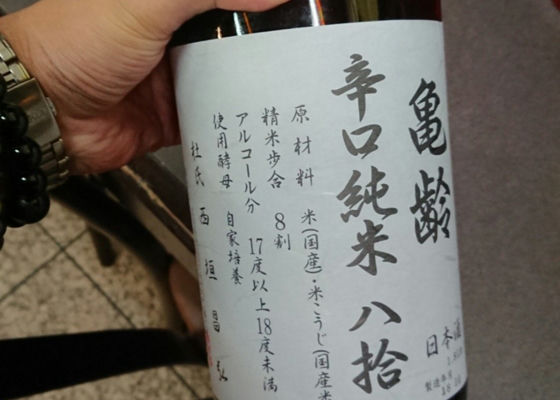 亀齢
辛口純米 八拾
日本酒
原材料 米(国産)・米こうじ(国産米
精米歩合 8割
アルコール分 17度以上18度未満
使用酵母 自家培養
杜氏 西垣昌弘
製造年月